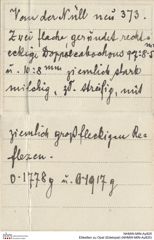 Von der Nüll neu 373.
Zwei flache, gerundet recht-
eckige Doppelcabochons 9½:8·5
u. 10:8 mm ziemlich stark
milchig, z. streifig, mit
ziemlich großfleckigen Re-
flexen.
0·1778 g u. 0·1917 g
NHMW-MIN-Au829
Etiketten zu Opal (Edelopal) (NHMW-MIN-Au829)